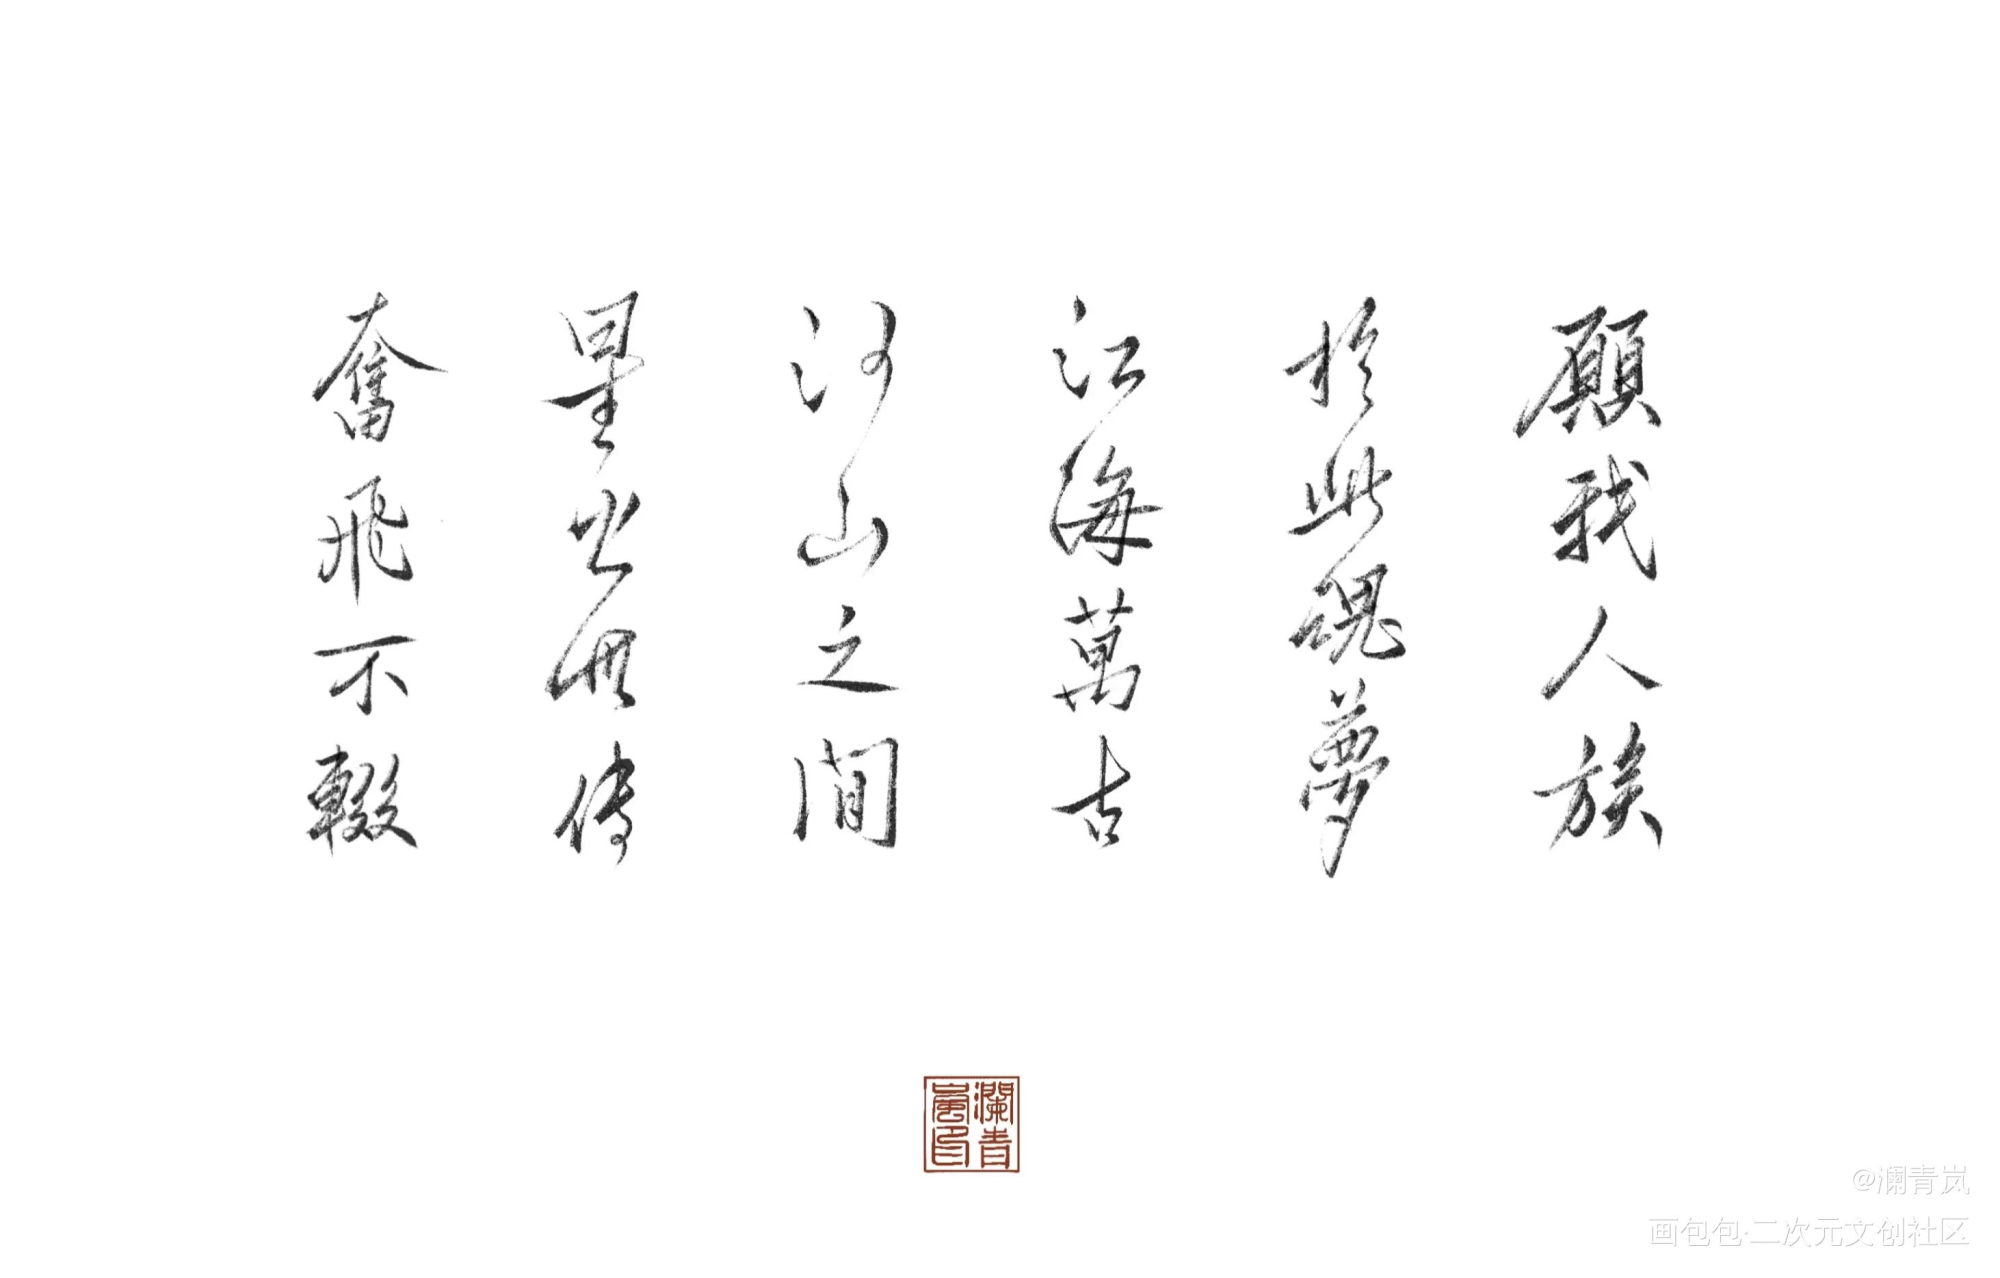 願我人族
於此魂夢
江海萬古
河山之間
星火世傳
奮飛不輟
瀾青嵐印
@澜青岚
画包包·二次元文创社区